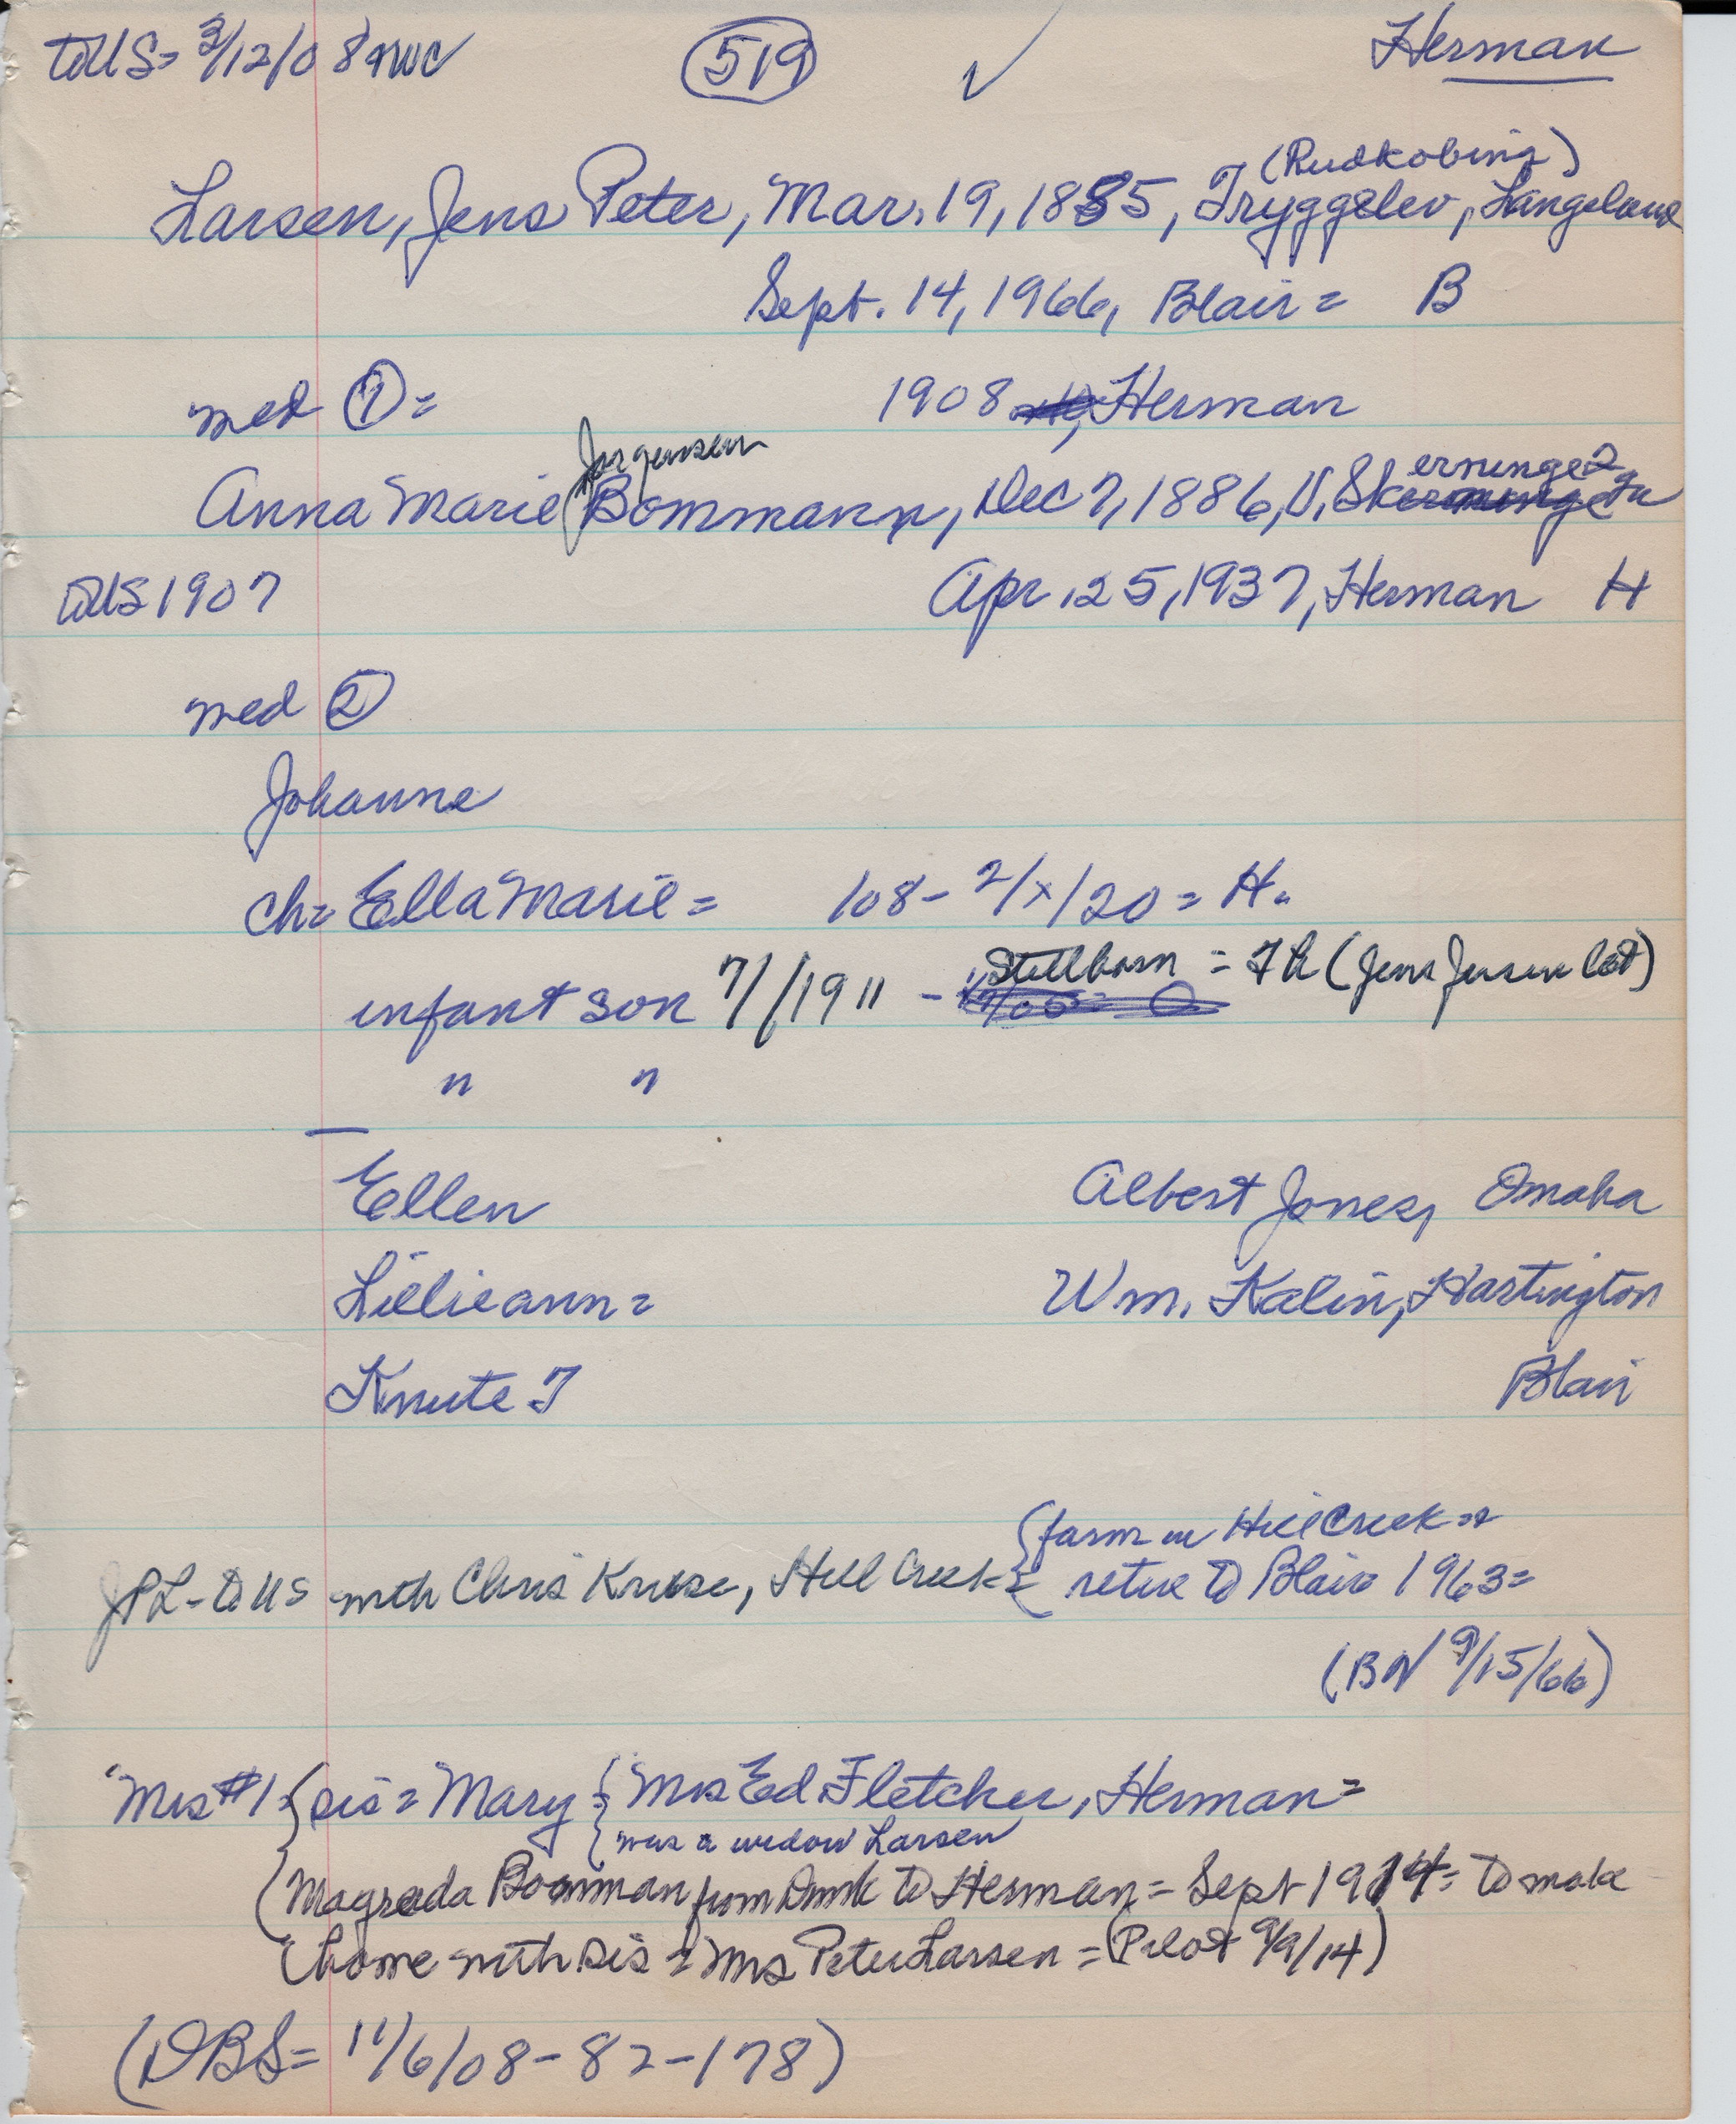 toUS= 3/12/08 nwc (519) ✓ Herman
(Rudkobing)
Larsen, Jens Peter, Mar. 19, 1885, Tryggelev, Langeland
Sept. 14, 1966, Blair = B
med ① = 1908 Herman
Jorgensen erninge
Anna Marie (Bommann, Dec 7, 1886, V. Sk
toUS 1907 Apr. 25, 1937, Herman H
med ②
Johanne
Ch= Ella Marie = 108 - 2/x/20 = H.
Stillborn = Fh (Jens Jensen lot)
infant son 7/ /1911 -
" "
Ellen Albert Jones, Omaha
Lillieann = Wm. Kalin, Hartington
Knute T Blair
{farm in Hill Creek =
JPL - to US with Chris Kruse, Hill Creek = { retire to Blair 1963 =
(BN 9/15/66)
Mrs #1 { sis = Mary = { Mrs Ed Fletcher, Herman =
{ was a widow Larsen
(Magrada Bomman from Dmk to Herman = Sept 1914 = to make
(home with sis = Mrs Peter Larsen = (Pilot 9/9/14)
(DBS= 11/6/08 - 82 - 178)